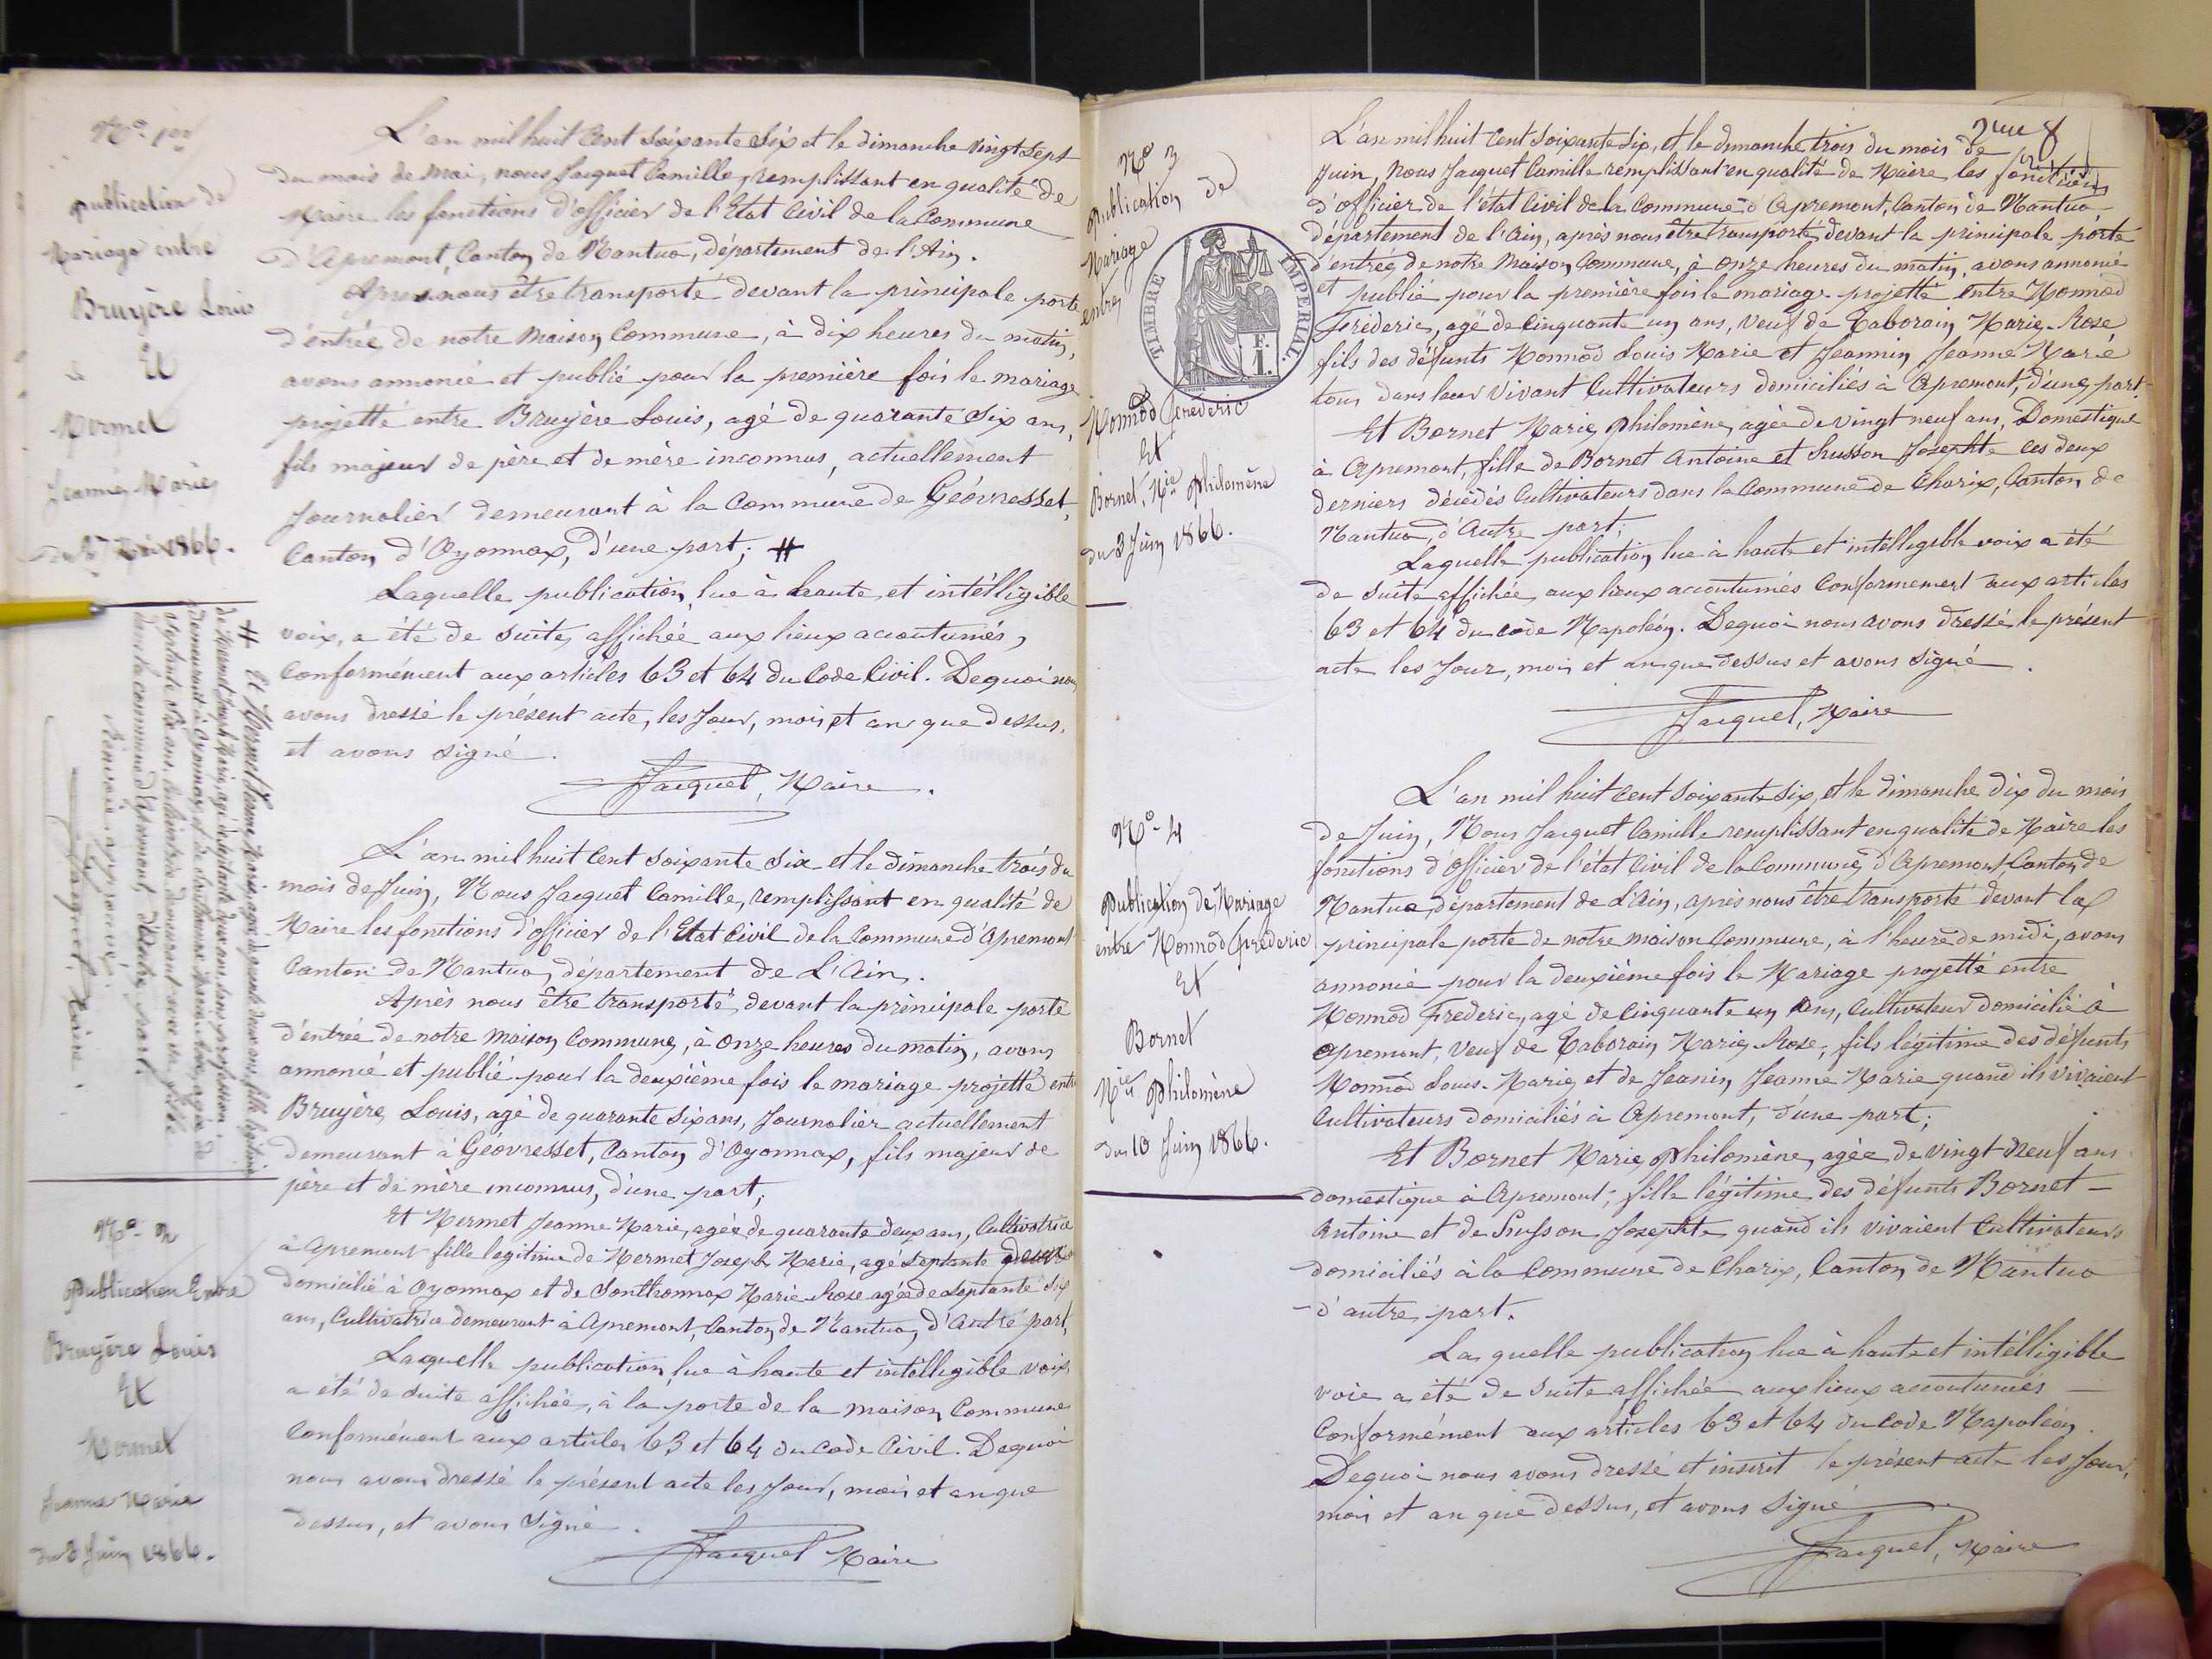 No 1er
publication de
Mariage entre
Bruyère Louis
Et
Mermet
Jeanne Marie
du 27 Mai 1866.
L'an mil huit Cent Soixante Six et le dimanche vingt sept
du mois de Mai, nous Jacquet Camille, remplissant en qualité de
Maire les fonctions d'officier de l'Etat Civil de la Commune
d'Apremont, Canton de Nantua, département de l'Ain.
Après nous être transporté devant la principale porte
d'entrée de notre Maison Commune, à dix heures du matin,
avons annoncé et publié pour la première fois le mariage
projetté entre Bruyère Louis, agé de quarante Six ans,
fils majeur de père et de mère inconnus, actuellement
Journalier demeurant à la Commune de Géovresset,
Canton d'Oyonnax, d'une part; #
Laquelle publication, lue à haute et intélligible
voix, a été de suite, affichée aux lieux accoutumés,
Conformément aux articles 63 et 64 du Code Civil. Dequoi nous
avons dressé le présent acte, les Jour, mois et an que dessus,
et avons signé.
Jacquet, Maire.
# Et Mermet Jeanne Marie, agée de quarante deux ans, fille légitime
de Mermet Joseph Marie, agé de septante deux ans, sans profession,
demeurant à Oyonnax, et de Sonthonnax Marie Rose, agée de
septante six ans, cultivatrice demeurant avec sa fille
dans la commune d'Apremont, d'Autre part.
Renvoi approuvé.
Jacquet, Maire.
No 2
Publication Entre
Bruyère Louis
Et
Mermet
Jeanne Marie
du 3 Juin 1866.
L'an mil huit Cent soixante six et le dimanche trois du
mois de Juin, Nous Jacquet Camille, remplissant en qualité de
Maire les fonctions d'officier de l'Etat Civil de la Commune d'Apremont
Canton de Nantua, département de L'Ain.
Après nous être transporté devant la principale porte
d'entrée de notre Maison Commune, à onze heures du matin, avons
annoncé et publié pour la deuxième fois le mariage projetté entre
Bruyère Louis, agé de quarante six ans, Journalier actuellement
demeurant à Géovresset, Canton d'Oyonnax, fils majeur de
père et de mère inconnus, d'une part;
Et Mermet Jeanne Marie, agée de quarante deux ans, Cultivatrice
à Apremont fille légitime de Mermet Joseph Marie, agé septante deux
domicilié à Oyonnax et de Sonthonnax Marie Rose agée de septante six
ans, Cultivatrice demeurant à Apremont, Canton de Nantua, d'Autre part,
Laquelle publication lue à haute et intelligible voix
a été de suite affichée, à la porte de la maison Commune
Conformément aux articles 63 et 64 du Code Civil. Dequoi
nous avons dressé le présent acte les Jour, mois et an que
dessus, et avons signé.
Jacquet Maire
8
No 3
Publication de
Mariage
entre
TIMBRE IMPERIAL.
F.
1.
Monnod Frédéric
Et
Bornet, Mie Philomène
du 3 Juin 1866.
L'an mil huit Cent soixante six, et le dimanche trois du mois de
Juin, Nous Jacquet Camille remplissant en qualité de Maire les fonctions
d'officier de l'état Civil de la Commune d'Apremont, Canton de Nantua
département de l'Ain, après nous être transporté devant la principale porte
d'entrée de notre Maison Commune, à onze heures du matin, avons annoncé
et publié pour la première fois le mariage projetté entre Monnod
Fréderic, agé de Cinquante un ans, Veuf de Taborain Marie-Rose,
fils des défunts Monnod Louis Marie et Jeannin Jeanne Marie
tous dans leur vivant Cultivateurs domiciliés à Apremont, d'une part.
Et Bornet Marie Philomène, agée de vingt neuf ans, Domestique
à Apremont, fille de Bornet Antoine et Susson Josephte ces deux
derniers décédés Cultivateurs dans la Commune de Charix, Canton de
Nantua, d'Autre part;
Laquelle publication lue à haute et intelligible voix a été
de suite affichée, aux lieux accoutumés Conformément aux articles
63 et 64 du Code Napoléon. Dequoi nous avons dressé le présent
acte les Jour, mois et an que dessus et avons signé.
Jacquet, Maire
No 4
Publication de Mariage
entre Monnod Frédéric
Et
Bornet
Mie Philomène
du 10 Juin 1866.
L'an mil huit Cent soixante six, et le dimanche dix du mois
de Juin, Nous Jacquet Camille remplissant en qualité de Maire les
fonctions d'officier de l'état Civil de la Commune d'Apremont, Canton de
Nantua, département de L'Ain, après nous être transporté devant la
principale porte de notre maison Commune, à l'heure de midi, avons
annoncé pour la deuxième fois le Mariage projetté entre
Monnod Frederic, agé de Cinquante un Ans, Cultivateur domicilié à
Apremont, Veuf de Taborain Marie Rose, fils légitime des défunts
Monnod Louis-Marie, et de Jeanin Jeanne Marie quand ils vivaient
Cultivateurs domiciliés à Apremont, d'une part;
Et Bornet Marie Philomène, agée de vingt neuf ans
domestique à Apremont; fille légitime des défunts Bornet
Antoine et de Susson Josephte quand ils vivaient Cultivateurs
domiciliés à la Commune de Charix, Canton de Nantua
d'autre part.
Laquelle publication lue à haute et intélligible
voie a été de suite affichée aux lieux accoutumés
Conformément aux articles 63 et 64 du Code Napoléon.
Dequoi nous avons dressé et inscrit le présent acte les Jour,
mois et an que dessus, et avons signé
Jacquet, Maire